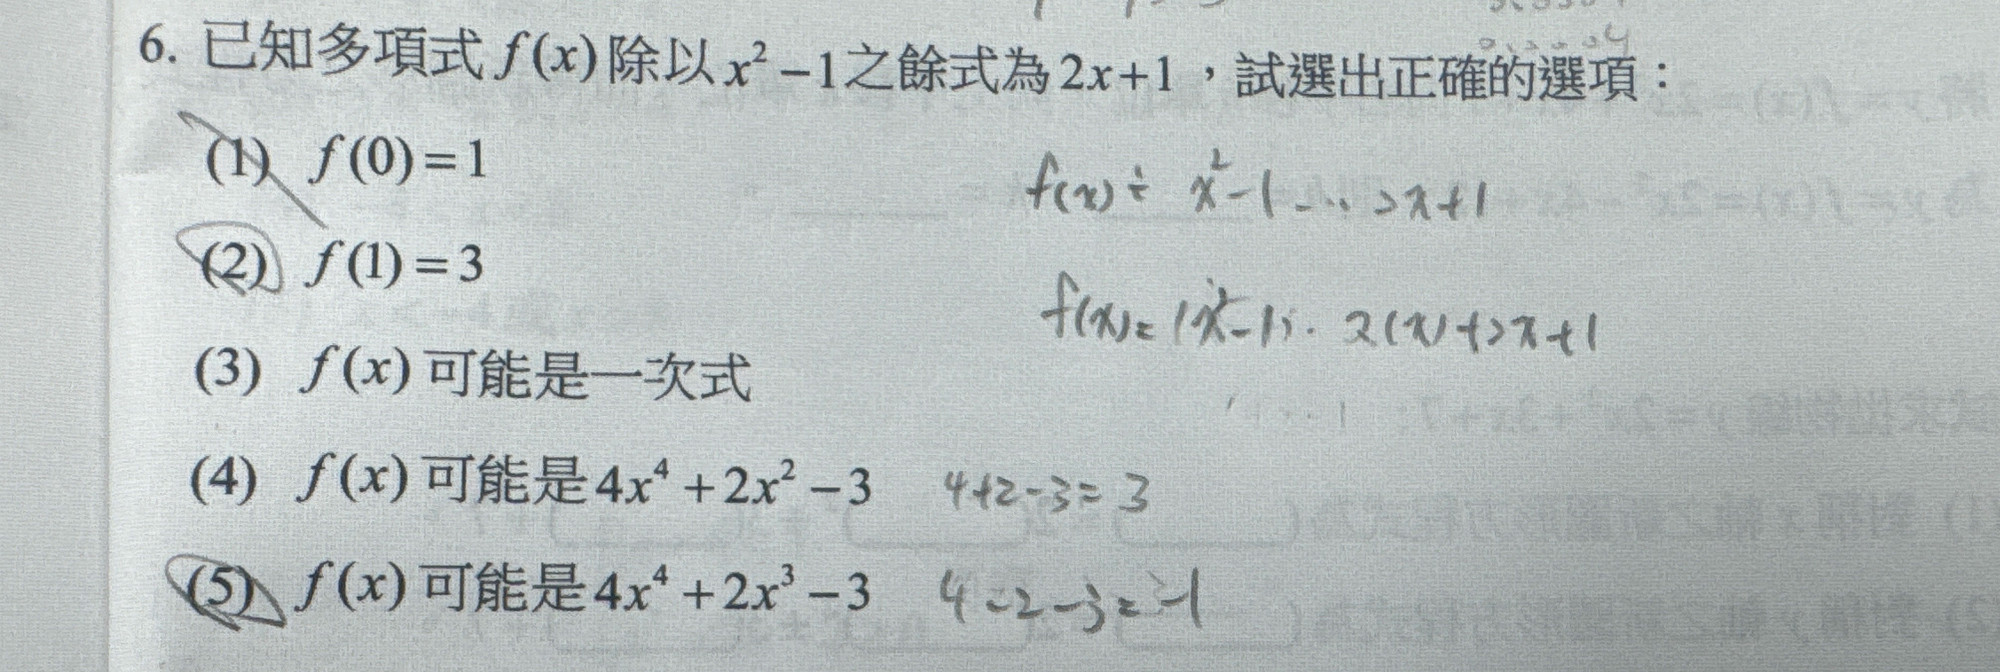 6. 已知多項式 f(x) 除以 x² −1之餘式為 2x+1，試選出正確的選項：
(1) f(0)=1
f(x) ÷ x²-1 ... 2x+1
(2) f(1)=3
f(x)= (x²-1)· 2(x)+2x+1
(3) f(x) 可能是一次式
(4) f(x) 可能是 4x⁴ +2x² −3 4+2-3=3
(5) f(x) 可能是 4x⁴ +2x³ −3 4-2-3=-1